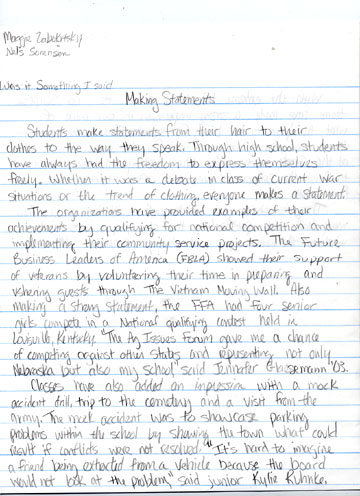 Maggie Zabokrtsky
Nels Sorensen
Was it Something I said
Making Statements
Students make statements from their hair to their
clothes to the way they speak. Through high school, students
have always had the freedom to express themselves
freely. Whether it was a debate in class of current war
situations or the trend of clothing, everyone makes a statement.
The organizations have provided examples of their
achievements by qualifying for national competition and
implementing their community service projects. The Future
Business Leaders of America (FBLA) showed their support
of veterans by volunteering their time in preparing and
ushering guests through The Vietnam Moving Wall. Also
making a strong statement, the FFA had four senior
girls compete in a National qualifying contest held in
Louisville, Kentucky. "The Ag Issues Forum gave me a chance
of competing against other states and representing not only
Nebraska but also my school" said Jennifer '03.
Classes have also added an impression with a mock
accident drill, trip to the cemetery and a visit from the
army. The mock accident was to showcase parking
problems within the school by showing the town what could
result if conflicts were not resolved. "It's hard to imagine
a friend being extracted from a vehicle because the board
would not look at the problem" said junior Kylie Kuhnke.